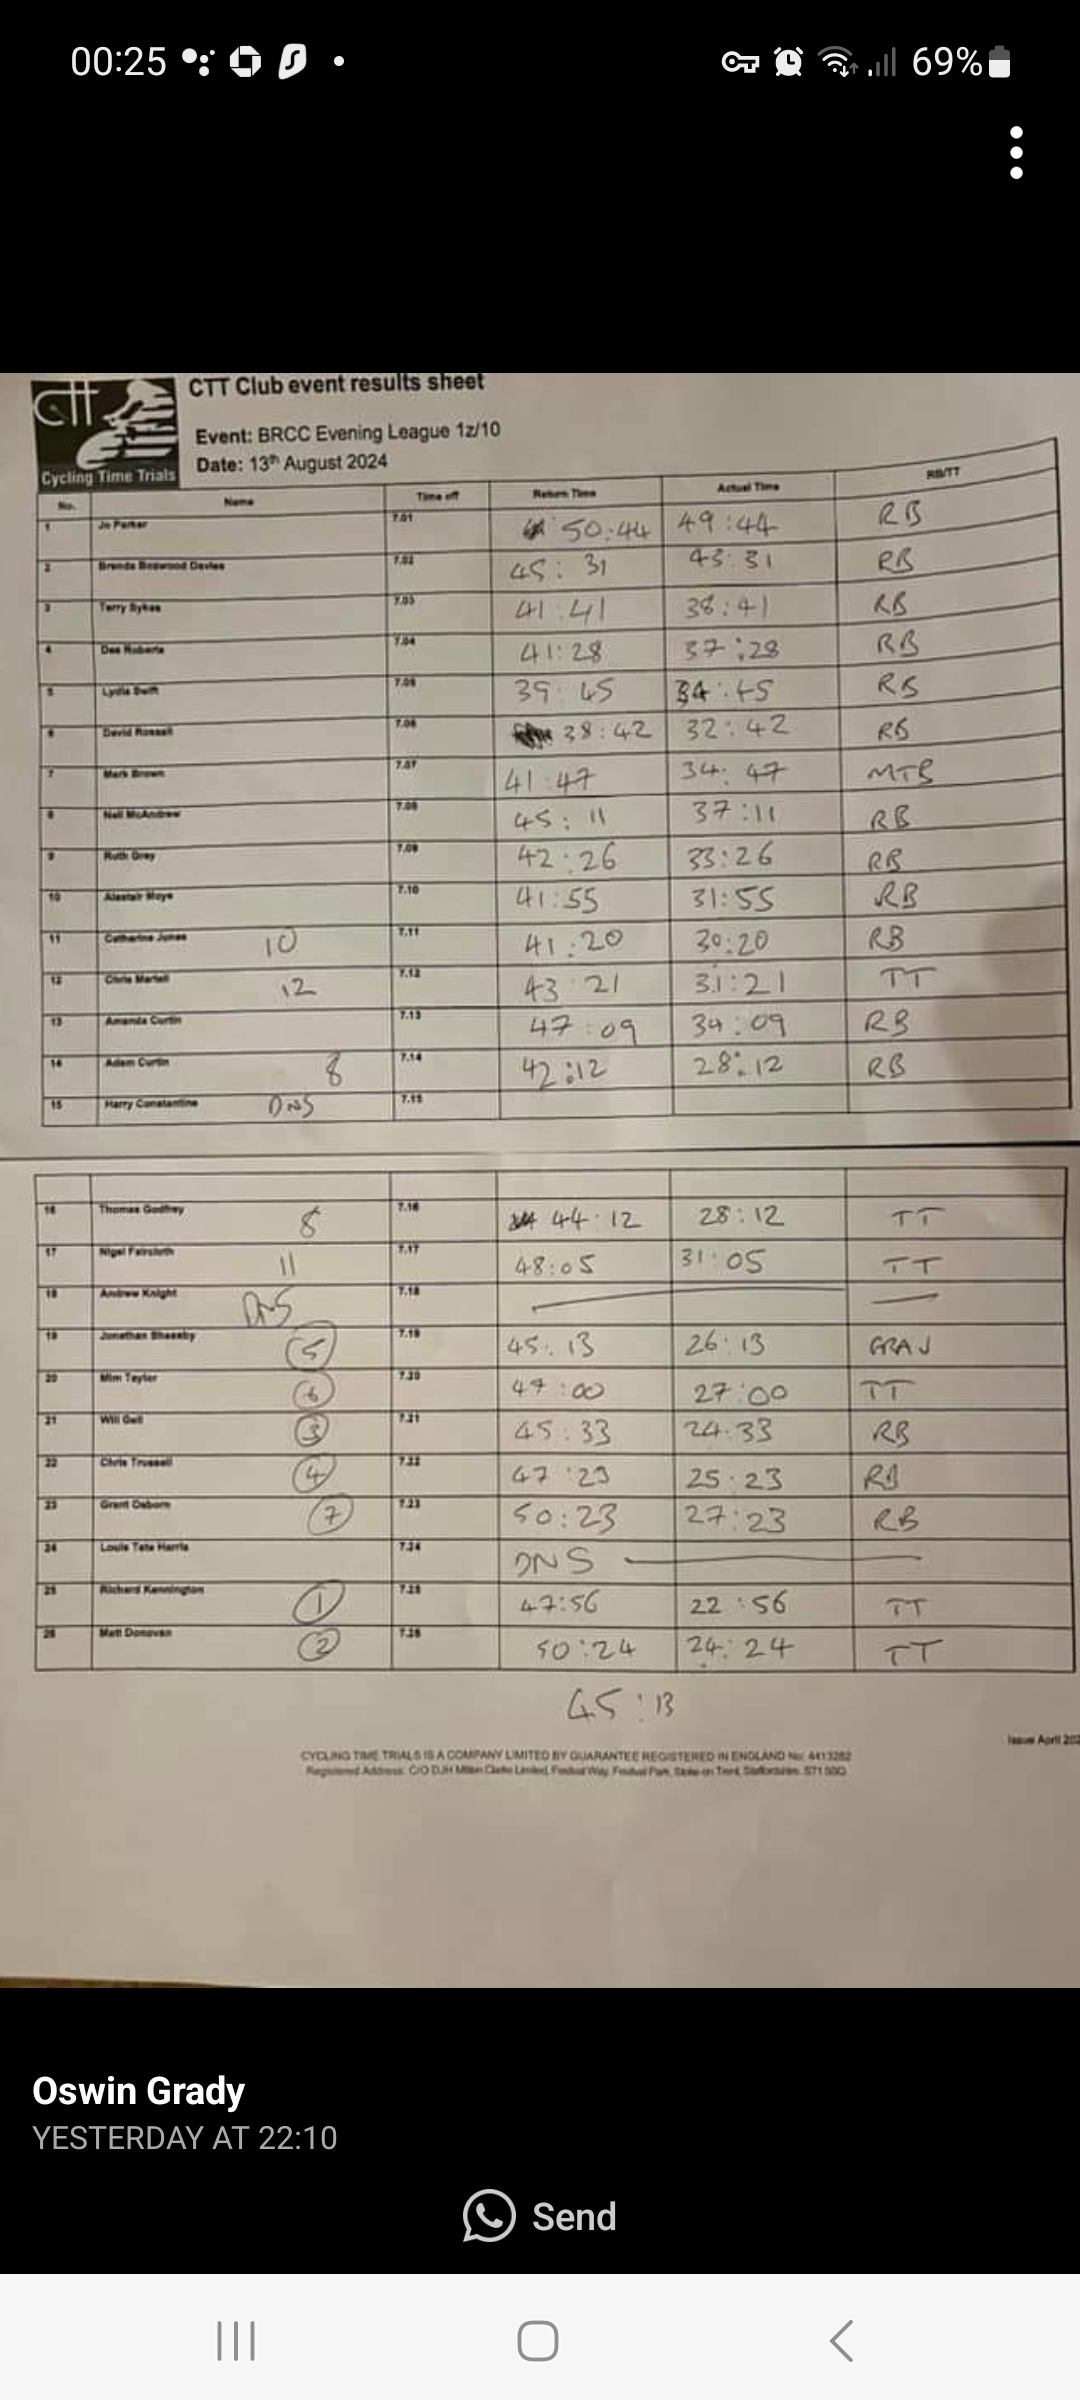 00:25
69%
CTT
Cycling Time Trials
CTT Club event results sheet
Event: BRCC Evening League 1z/10
Date: 13th August 2024
No. Name Time off Return Time Actual Time RB/TT
1 Jo Parker 7.01 50:44 49:44 RB
2 Brenda Boswood Davies 7.02 45:31 43:31 RB
3 Terry Sykes 7.03 41:41 38:41 RB
4 Dee Roberts 7.04 41:28 37:28 RB
5 Lydia Swift 7.05 39:45 34:45 RB
6 David Russell 7.06 38:42 32:42 RB
7 Mark Brown 7.07 41:47 34:47 MTB
8 Neil McAndrew 7.08 45:11 37:11 RB
9 Ruth Grey 7.09 42:26 33:26 RB
10 Alastair Moye 7.10 41:55 31:55 RB
11 Catharine Jones 10 7.11 41:20 30:20 RB
12 Chris Martell 12 7.12 43:21 31:21 TT
13 Amanda Curtin 7.13 47:09 34:09 RB
14 Adam Curtin 8 7.14 42:12 28:12 RB
15 Harry Constantine DNS 7.15
16 Thomas Godfrey 8 7.16 44:12 28:12 TT
17 Nigel Faircloth 11 7.17 48:05 31:05 TT
18 Andrew Knight DNS 7.18
19 Jonathan 5 7.19 45:13 26:13 GRAV
20 Mim Taylor 6 7.20 47:00 27:00 TT
21 Will Gell 3 7.21 45:33 24:33 RB
22 Chris Trussell 4 7.22 47:23 25:23 RB
23 Grant Osborn 7 7.23 50:23 27:23 RB
24 Louis Tate Harris 7.24 DNS
25 Richard Kennington 1 7.25 47:56 22:56 TT
26 Matt Donovan 2 7.26 50:24 24:24 TT
45:13
Issue April 202
CYCLING TIME TRIALS IS A COMPANY LIMITED BY GUARANTEE REGISTERED IN ENGLAND No: 4413282
Registered Address: C/O DJH Mitten Clarke Limited, Festival Way, Festival Park, Stoke on Trent, Staffordshire. ST1 5SQ
Oswin Grady
YESTERDAY AT 22:10
Send